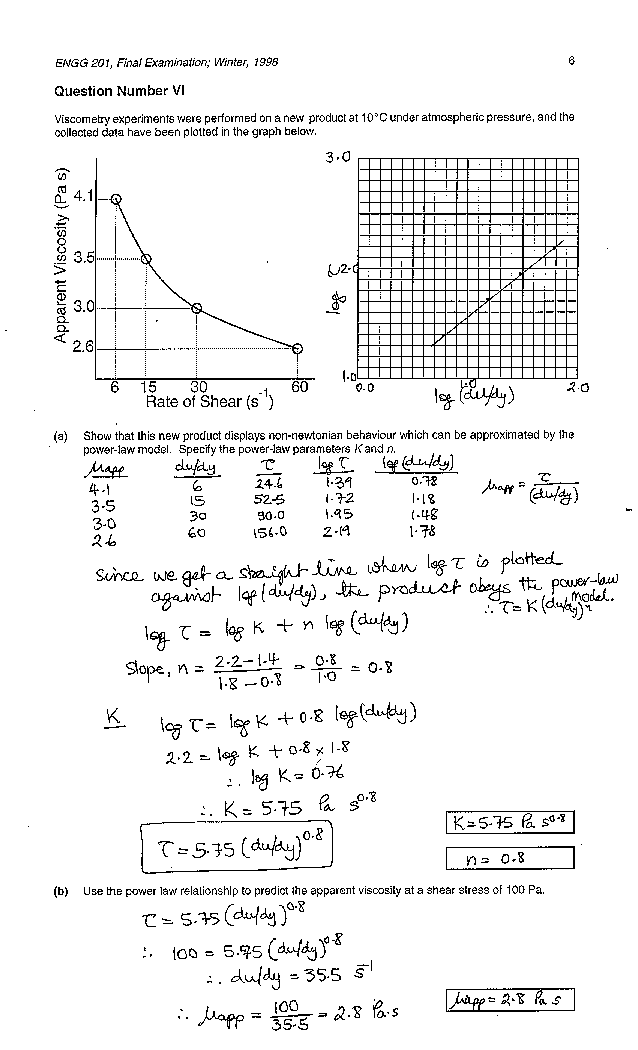 ENGG 201, Final Examination; Winter, 1996 6
Question Number VI
Viscometry experiments were performed on a new product at 10°C under atmospheric pressure, and the
collected data have been plotted in the graph below.
Apparent Viscosity (Pa s)
4.1
3.5
3.0
2.6
6 15 30 60
Rate of Shear (s⁻¹)
3.0
log τ 2.0
1.0
0.0 1.0 2.0
log (du/dy)
(a) Show that this new product displays non-newtonian behaviour which can be approximated by the
power-law model. Specify the power-law parameters K and n.
μapp du/dy τ log τ log (du/dy)
4.1 6 24.6 1.39 0.78
3.5 15 52.5 1.72 1.18
3.0 30 90.0 1.95 1.48
2.6 60 156.0 2.19 1.78
μapp = τ / (du/dy)
Since we get a straight line when log τ is plotted
against log (du/dy), the product obeys the power-law
model.
∴ τ = K (du/dy)ⁿ
log τ = log K + n log (du/dy)
Slope, n = 2.2 - 1.4 / 1.8 - 0.8 = 0.8 / 1.0 = 0.8
K log τ = log K + 0.8 log (du/dy)
2.2 = log K + 0.8 x 1.8
∴ log K = 0.76
∴ K = 5.75 Pa s^0.8
τ = 5.75 (du/dy)^0.8
K = 5.75 Pa s^0.8
n = 0.8
(b) Use the power law relationship to predict the apparent viscosity at a shear stress of 100 Pa.
τ = 5.75 (du/dy)^0.8
∴ 100 = 5.75 (du/dy)^0.8
∴ du/dy = 35.5 s⁻¹
∴ μapp = 100 / 35.5 = 2.8 Pa.s
μapp = 2.8 Pa s